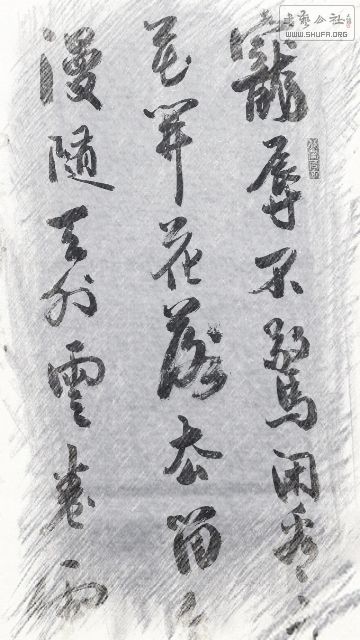 寵辱不驚閑看
花開花落去留
漫隨天外雲卷雲
WWW.SHUFA.ORG